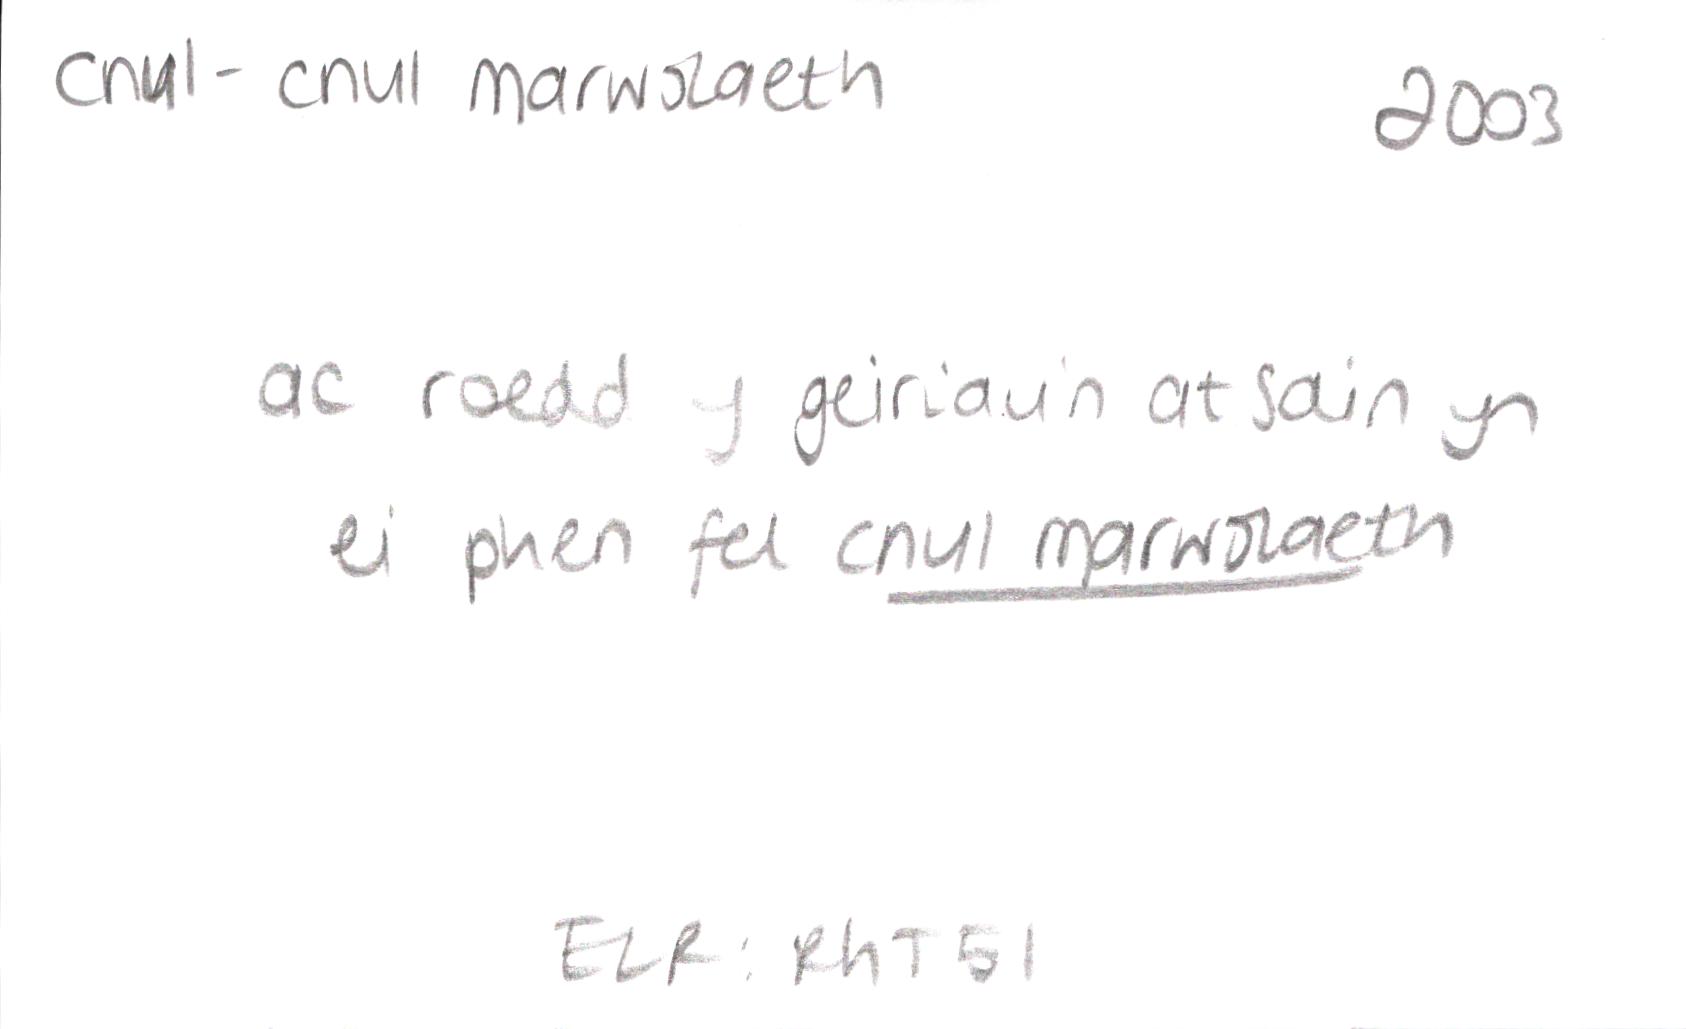 cnul - cnul marwolaeth 2003
ac roedd y geiriau'n atsain yn
ei phen fel cnul marwolaeth
ELR: RhT 51